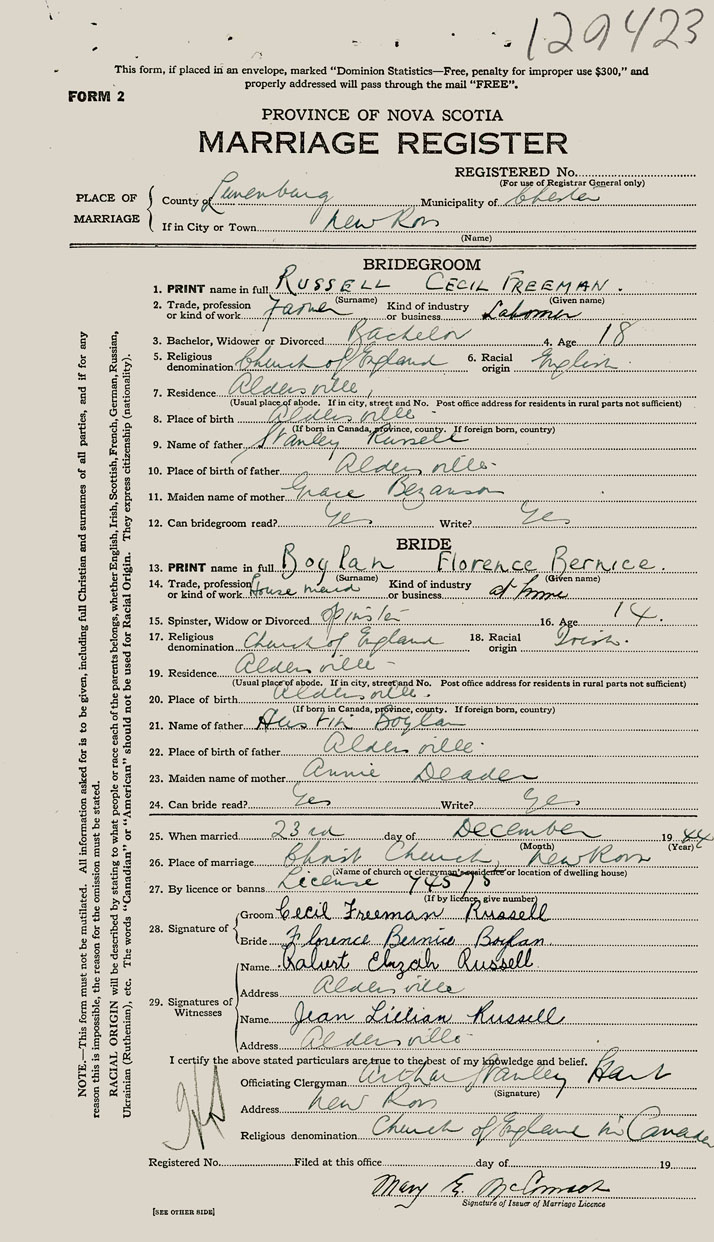 129423
This form, if placed in an envelope, marked "Dominion Statistics—Free, penalty for improper use $300," and
properly addressed will pass through the mail "FREE".
FORM 2
PROVINCE OF NOVA SCOTIA
MARRIAGE REGISTER
REGISTERED No.
(For use of Registrar General only)
PLACE OF MARRIAGE
County of Lunenburg Municipality of Chester
If in City or Town New Ross
(Name)
BRIDEGROOM
1. PRINT name in full RUSSELL CECIL FREEMAN.
(Surname) (Given name)
2. Trade, profession or kind of work Farmer Kind of industry or business Labourer
3. Bachelor, Widower or Divorced Bachelor 4. Age 18
5. Religious denomination Church of England 6. Racial origin English.
7. Residence Aldersville,
(Usual place of abode. If in city, street and No. Post office address for residents in rural parts not sufficient)
8. Place of birth Aldersville
(If born in Canada, province, county. If foreign born, country)
9. Name of father Stanley Russell
10. Place of birth of father Aldersville
11. Maiden name of mother Grace Bezanson
12. Can bridegroom read? Yes Write? Yes
BRIDE
13. PRINT name in full Boylan Florence Bernice.
(Surname) (Given name)
14. Trade, profession or kind of work House maid Kind of industry or business at home
15. Spinster, Widow or Divorced Spinster 16. Age 14.
17. Religious denomination Church of England 18. Racial origin Irish.
19. Residence Aldersville
(Usual place of abode. If in city, street and No. Post office address for residents in rural parts not sufficient)
20. Place of birth Aldersville.
(If born in Canada, province, county. If foreign born, country)
21. Name of father Austin Boylan
22. Place of birth of father Aldersville
23. Maiden name of mother Annie Deader
24. Can bride read? Yes Write? Yes
25. When married 23rd day of December 1944
(Month) (Year)
26. Place of marriage Christ Church, New Ross
(Name of church or clergyman's residence or location of dwelling house)
27. By licence or banns License 74578
(If by licence, give number)
28. Signature of
Groom Cecil Freeman Russell
Bride Florence Bernice Boylan
29. Signatures of Witnesses
Name Robert Elizah Russell
Address Aldersville
Name Jean Lillian Russell
Address Aldersville
I certify the above stated particulars are true to the best of my knowledge and belief.
Officiating Clergyman Arthur Stanley Hart
(Signature)
Address New Ross
Religious denomination Church of England in Canada
Registered No. Filed at this office day of 19
Mary E. McCormack
Signature of Issuer of Marriage Licence
[SEE OTHER SIDE]
NOTE.—This form must not be mutilated. All information asked for is to be given, including full Christian and surnames of all parties, and if for any
reason this is impossible, the reason for the omission must be stated.
RACIAL ORIGIN will be described by stating to what people or race each of the parents belongs, whether English, Irish, Scottish, French, German, Russian,
Ukrainian (Ruthenian), etc. The words "Canadian" or "American" should not be used for Racial Origin. They express citizenship (nationality).